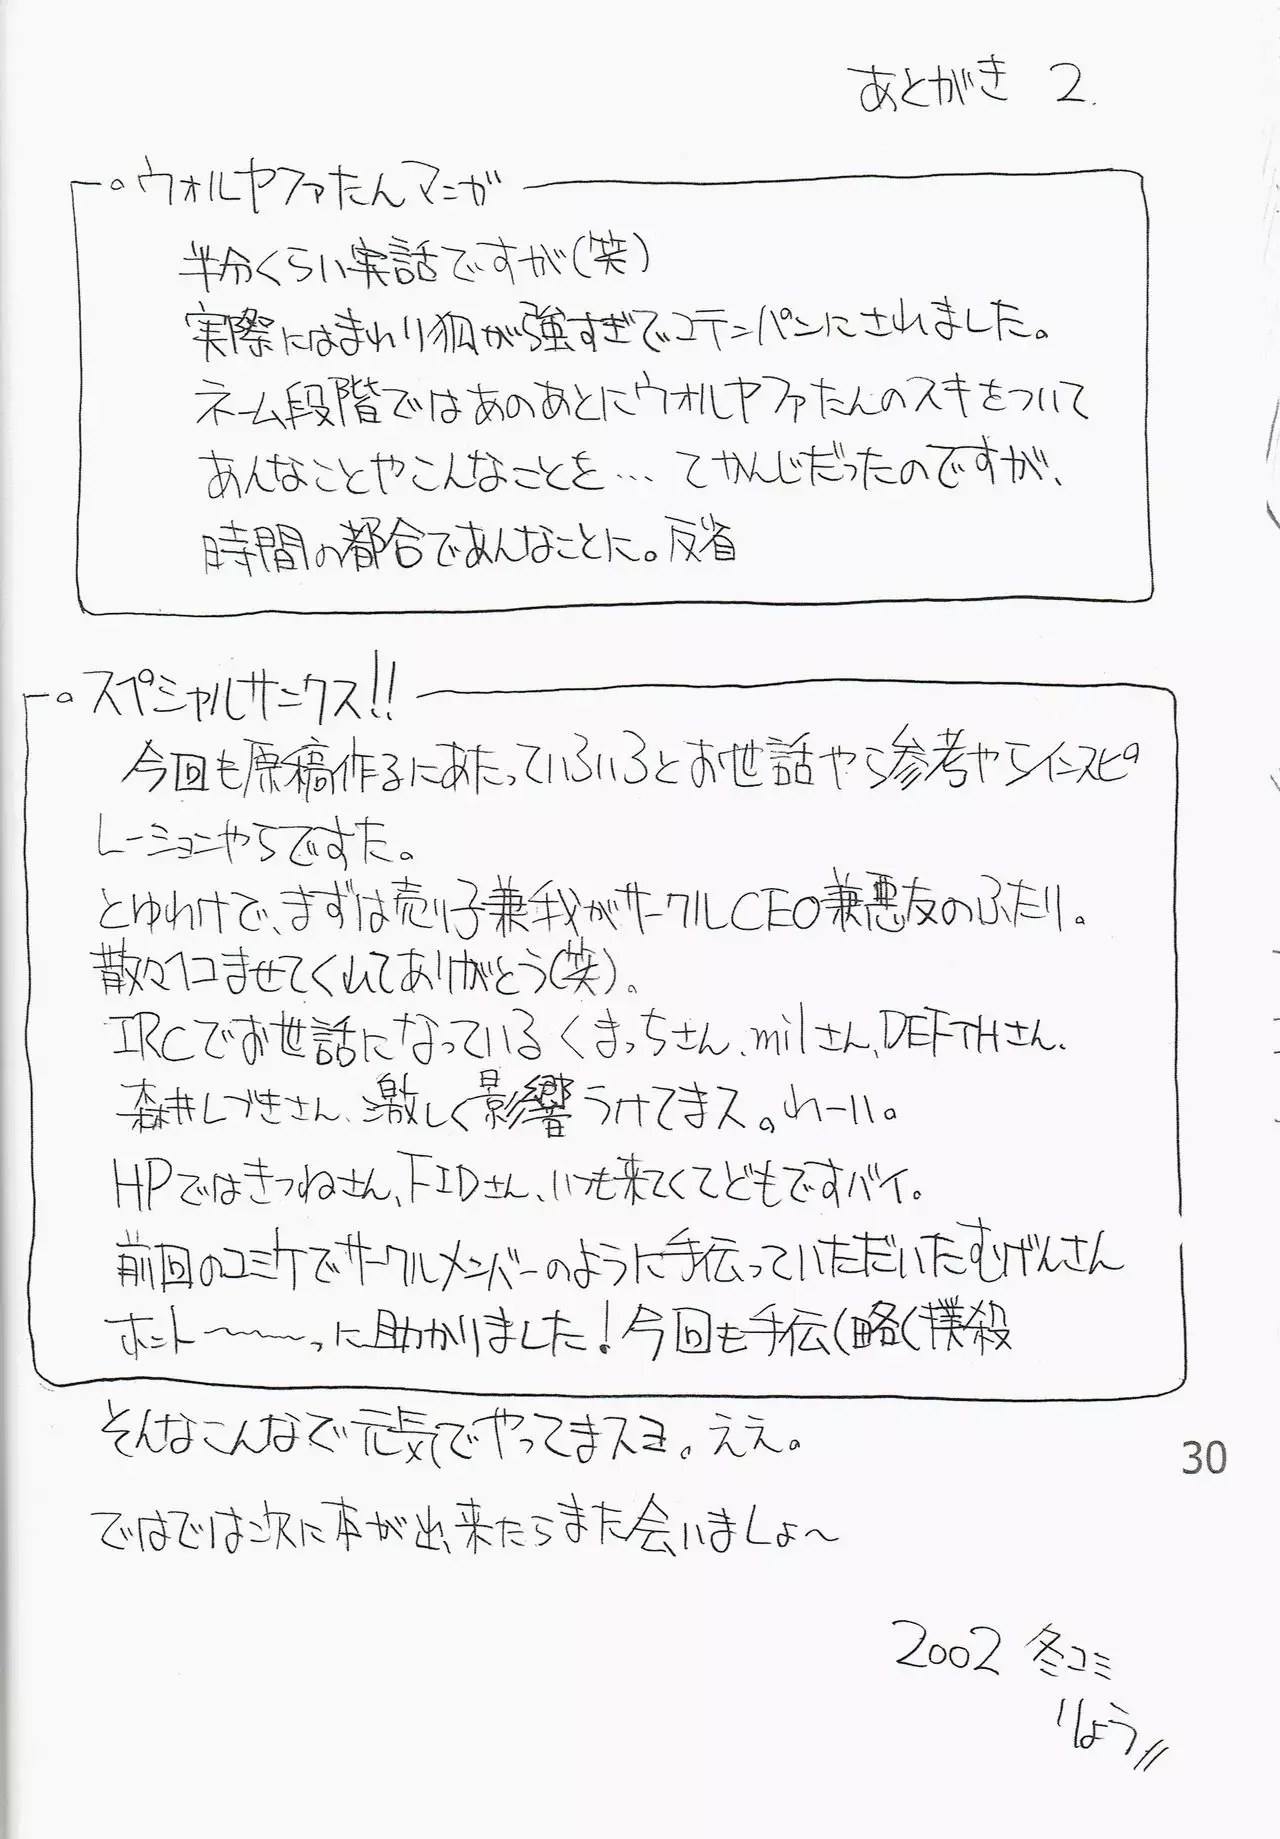 あとがき 2.
。ウォルヤファたんマンガ
半分くらい実話ですが(笑)
実際にはまわり狐が強すぎでコテンパンにされました。
ネーム段階ではあのあとにウォルヤファたんのスキをついて
あんなことやこんなことを… てかんじだったのですが、
時間の都合であんなことに。反省
。スペシャルサンクス!!
今回も原稿作るにあたっていろいろとお世話やら参考やらインスピ
レーションやらですた。
とゆわけで、まずは売り子兼我がサークルCEO兼悪友のふたり。
散々ヘコませてくれてありがとう(笑)。
IRCでお世話になっているくまっちさん、milさん、DEFTHさん、
森井しづきさん、激しく影響うけてまス。わーい。
HPではきつねさん、FIDさん、いつも来てくてどもですバイ。
前回のコミケでサークルメンバーのように手伝っていただいたむげんさん
ホント〜〜〜っに助かりました!今回も手伝(略(撲殺
そんなこんなで元気でやってまスヨ。ええ。
ではでは次に本が出来たらまた会いましょ〜
30
2002 冬コミ
りょう〃